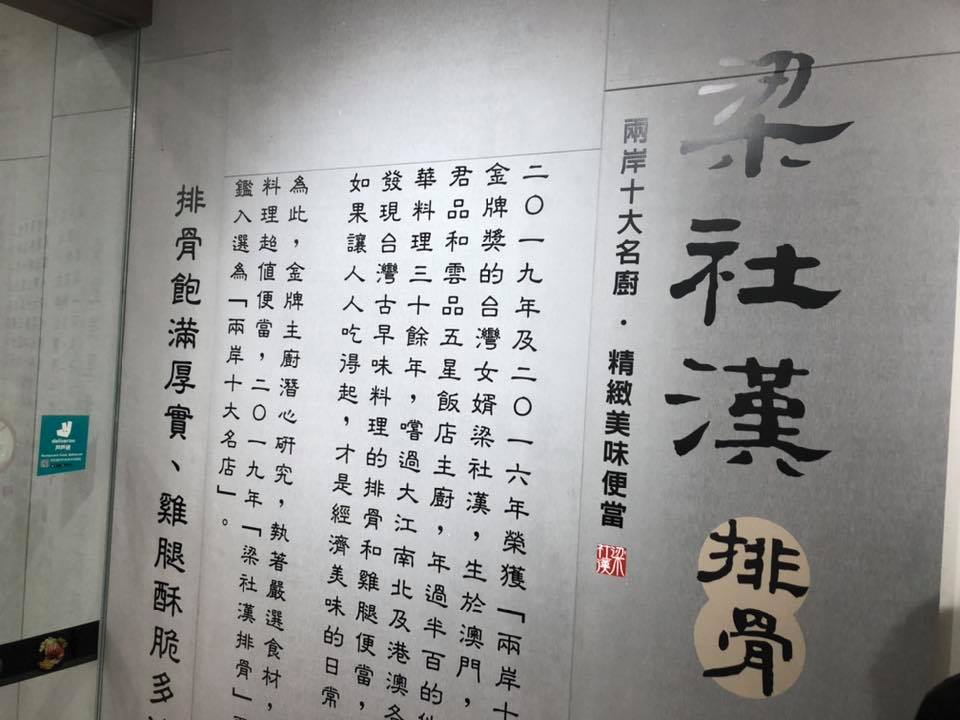 梁社漢
排骨
兩岸十大名廚．精緻美味便當
二〇一九年及二〇一六年榮獲「兩岸十
金牌獎的台灣女婿梁社漢，生於澳門，
君品和雲品五星飯店主廚，年過半百的他
華料理三十餘年，嚐過大江南北及港澳各
發現台灣古早味料理的排骨和雞腿便當，
如果讓人人吃得起，才是經濟美味的日常
為此，金牌主廚潛心研究，執著嚴選食材，
料理超值便當，二〇一九年「梁社漢排骨」
鑑入選為「兩岸十大名店」。
排骨飽滿厚實、雞腿酥脆多
deliveroo
戶戶送